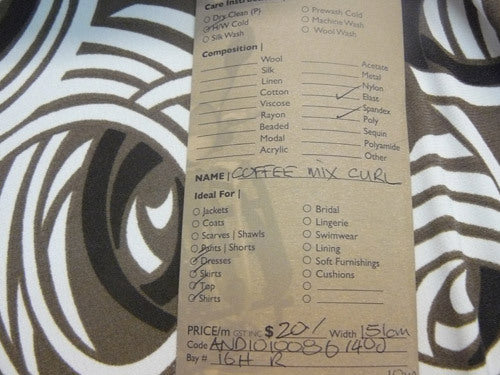 Care Instructions
Dry Clean (P)
H/W Cold
Silk Wash
Prewash Cold
Machine Wash
Wool Wash
Composition |
Wool
Silk
Linen
Cotton
Viscose
Rayon
Beaded
Modal
Acrylic
Acetate
Metal
Nylon
Elast
Spandex
Poly
Sequin
Polyamide
Other
NAME | COFFEE MIX CURL
Ideal For |
Jackets
Coats
Scarves | Shawls
Pants | Shorts
Dresses
Skirts
Top
Shirts
Bridal
Lingerie
Swimwear
Lining
Soft Furnishings
Cushions
PRICE/m GST INC $ 20/ Width 151cm
Code AND1010086 1400
Bay # 16H R